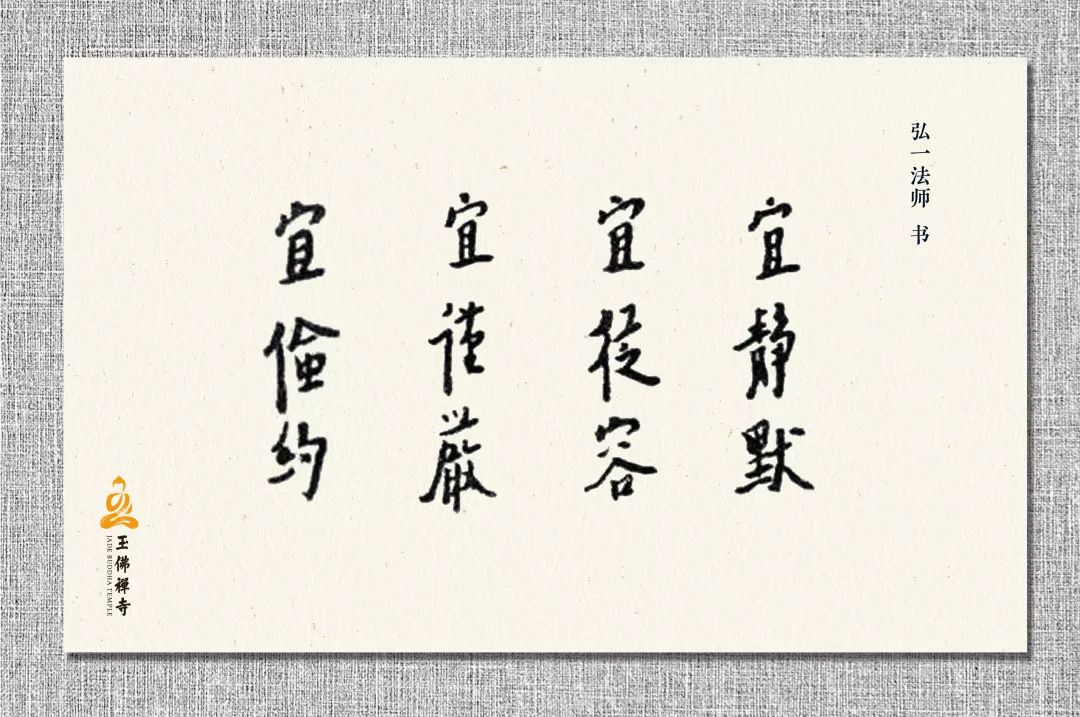 弘一法师 书
宜静默
宜從容
宜谨嚴
宜儉約
玉佛禅寺
JADE BUDDHA TEMPLE